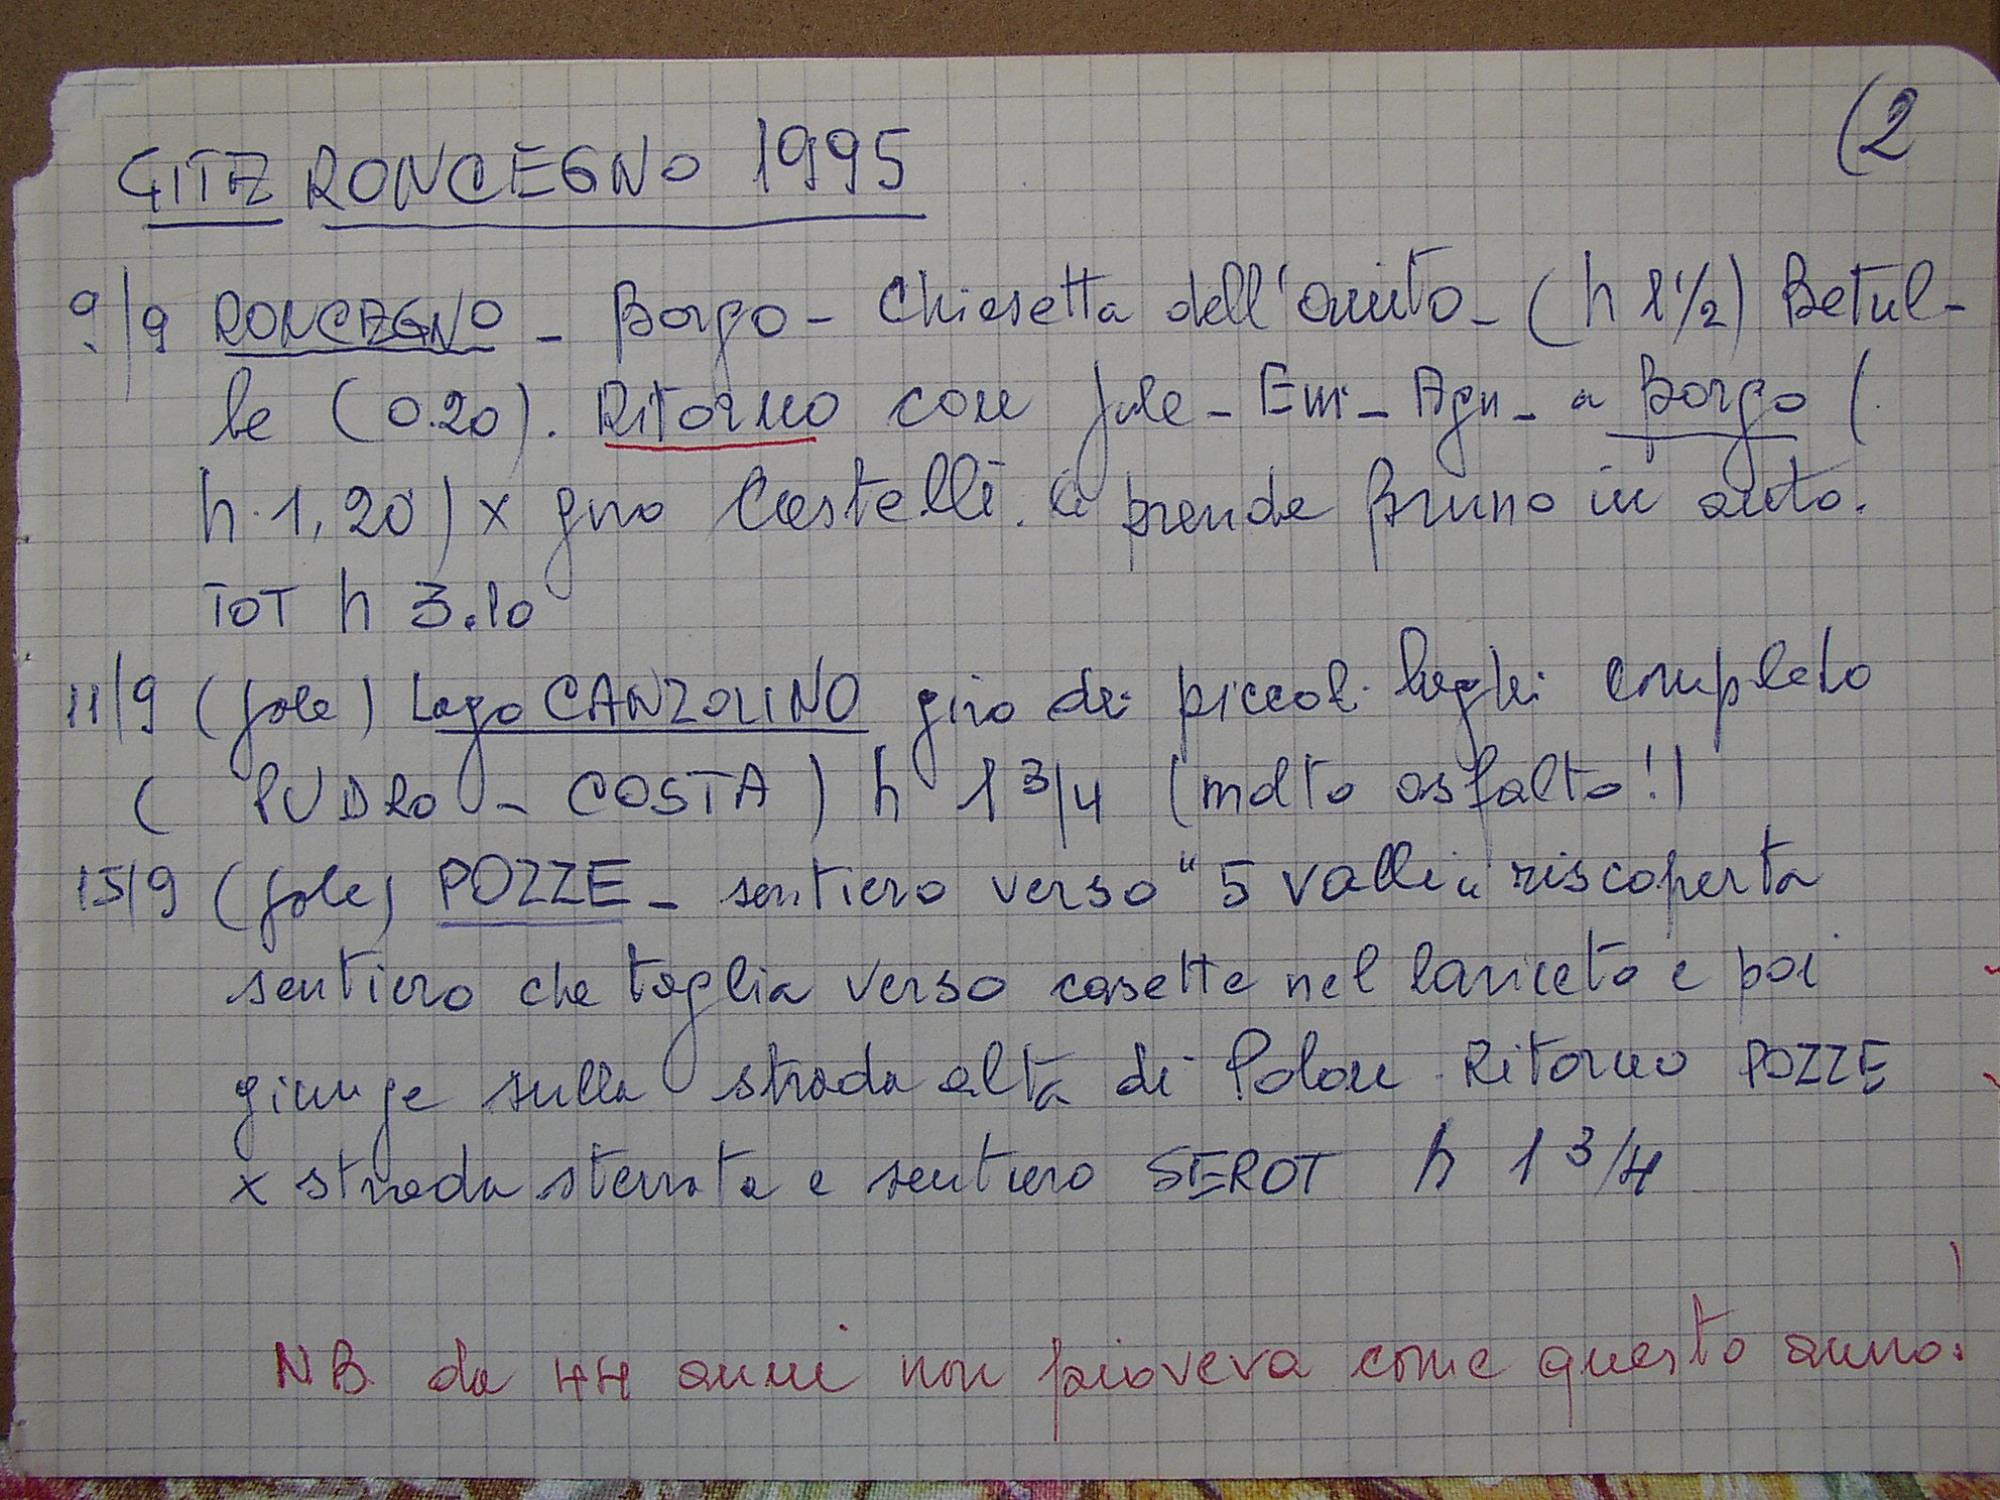 GITE RONCEGNO 1995 (2
9/9 RONCEGNO - Borgo - Chiesetta dell'Onito - (h 1½) Betul-
le (0.20). Ritorno con Jole - Emi - Agn - a Borgo (
h. 1,20) x giro Castelli. Ci prende Bruno in auto.
TOT h 3.10
11/9 (Jole) Lago CANZOLINO giro dei piccoli laghi completo
( PUDRO - COSTA ) h 1 3/4 (molto asfalto!)
15/9 (Jole) POZZE - sentiero verso "5 valli" riscoperta
sentiero che taglia verso casette nel lariceto e poi
giunge sulla strada alta di Polon. Ritorno POZZE
x strada sterrata e sentiero SEROT h 1 3/4
NB da 44 anni non pioveva come questo anno!